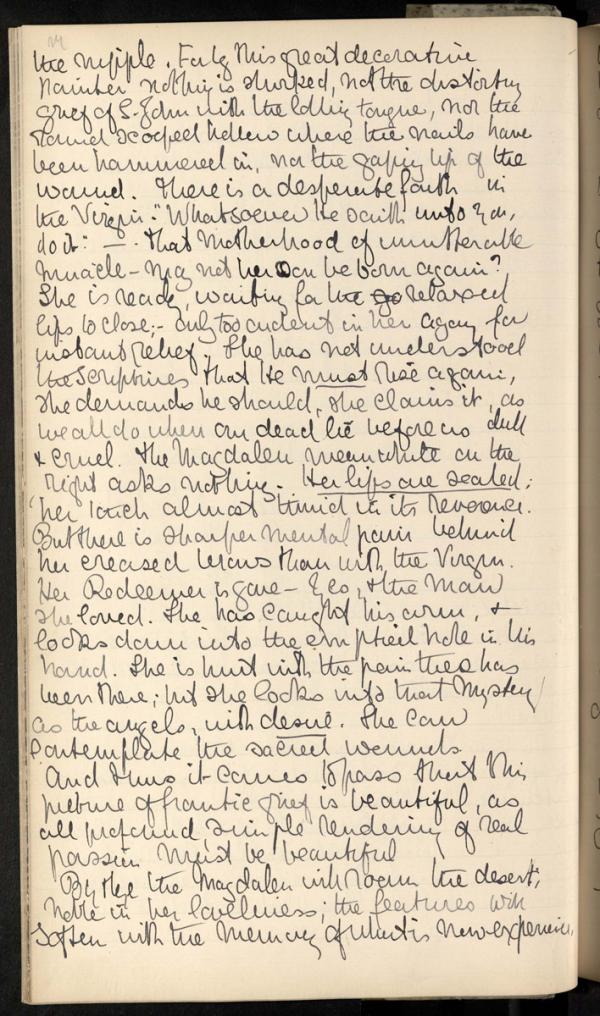 the nipple. For by this great decorative
painter nothing is shirked, not the distorting
grief of S. John with the lolling tongue, nor the
round scooped hollow where the nails have
been hammered in, nor the gaping lip of the
wound. There is a desperate faith in
the Virgin: "Whatsoever He saith unto you,
do it" — . that Motherhood of unutterable
Miracle — may not her Son be born again?
She is ready, waiting for the go relaxed
lips to close; - only too ardent in her agony for
instant relief. She has not understood
the Scriptures that He must rise again,
she demands he should, she claims it, as
we all do when our dead lie before us dull
& cruel. The Magdalen meanwhile on the
right asks nothing. Her lips are sealed:
her touch almost timid in its reverence.
But there is sharper mental pain behind
her creased brows than with the Virgin.
Her Redeemer is gone — & the Man
she loved. She has caught his arm, &
looks down into the emptied hole in his
hand. She is hurt with the pain that has
been there; but she looks into that Mystery
as the angels, with desire. She can
contemplate the sacred wounds
And thus it comes to pass that this
picture of frantic grief is beautiful, as
all profound, simple rendering of real
passion must be beautiful
By the bye the Magdalen will roam the desert,
noble in her loveliness; the features will
soften with the memory of what is now experience,